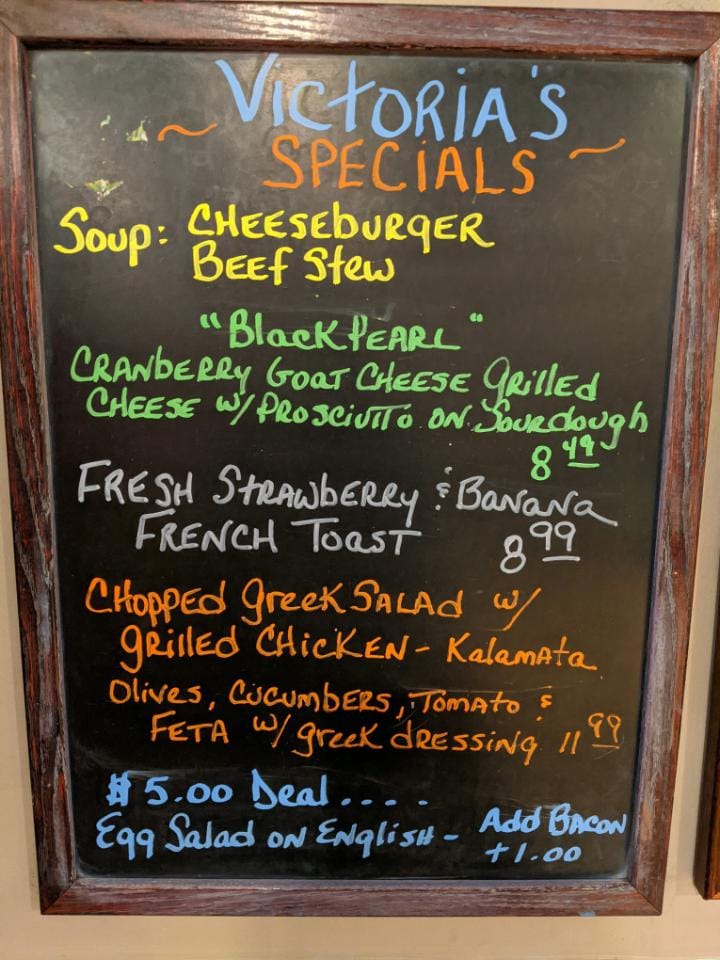 VICTORIA'S
~ SPECIALS ~
Soup: CHEESEBURGER
BEEF Stew
"Black PEARL"
CRANbERRY GOAT CHEESE GRilled
CHEESE w/ PROSCIUTTO ON SOURdough
8 49
FRESH STRAWbERRY & BANANA
FRENCH TOAST 8 99
CHOPPED GREEK SALAD w/
GRilled CHICKEN - Kalamata
Olives, CUCUMBERS, TOMATO &
FETA w/ greek dRESSING 11 99
$ 5.00 Deal . . . .
Egg Salad ON ENGLISH - Add BACON
+1.00